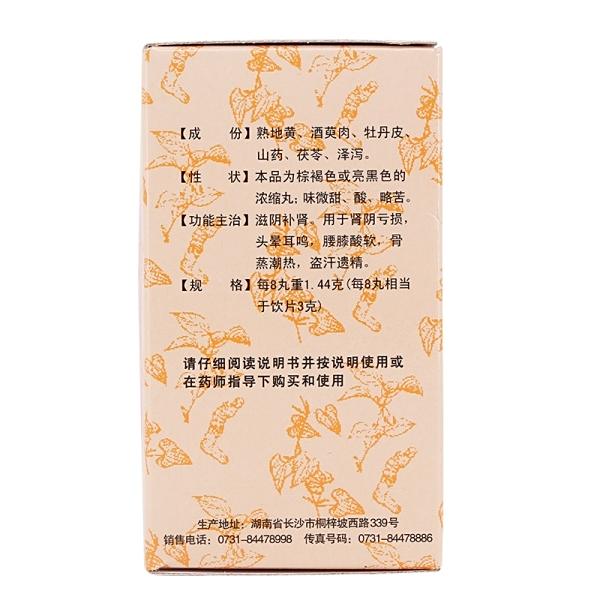 【成　份】熟地黄、酒萸肉、牡丹皮、
山药、茯苓、泽泻。
【性　状】本品为棕褐色或亮黑色的
浓缩丸；味微甜、酸、略苦。
【功能主治】滋阴补肾。用于肾阴亏损，
头晕耳鸣，腰膝酸软，骨
蒸潮热，盗汗遗精。
【规　格】每8丸重1.44克(每8丸相当
于饮片3克)
请仔细阅读说明书并按说明使用或
在药师指导下购买和使用
生产地址：湖南省长沙市桐梓坡西路339号
销售电话：0731-84478998　传真号码：0731-84478886